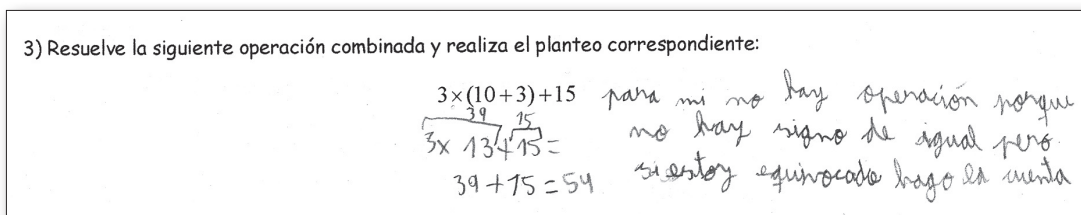 3) Resuelve la siguiente operación combinada y realiza el planteo correspondiente:
3×(10+3)+15 para mi no hay operación porque
39 15
3x 13+15= no hay signo de igual pero
39+15=54 si estoy equivocada hago la cuenta